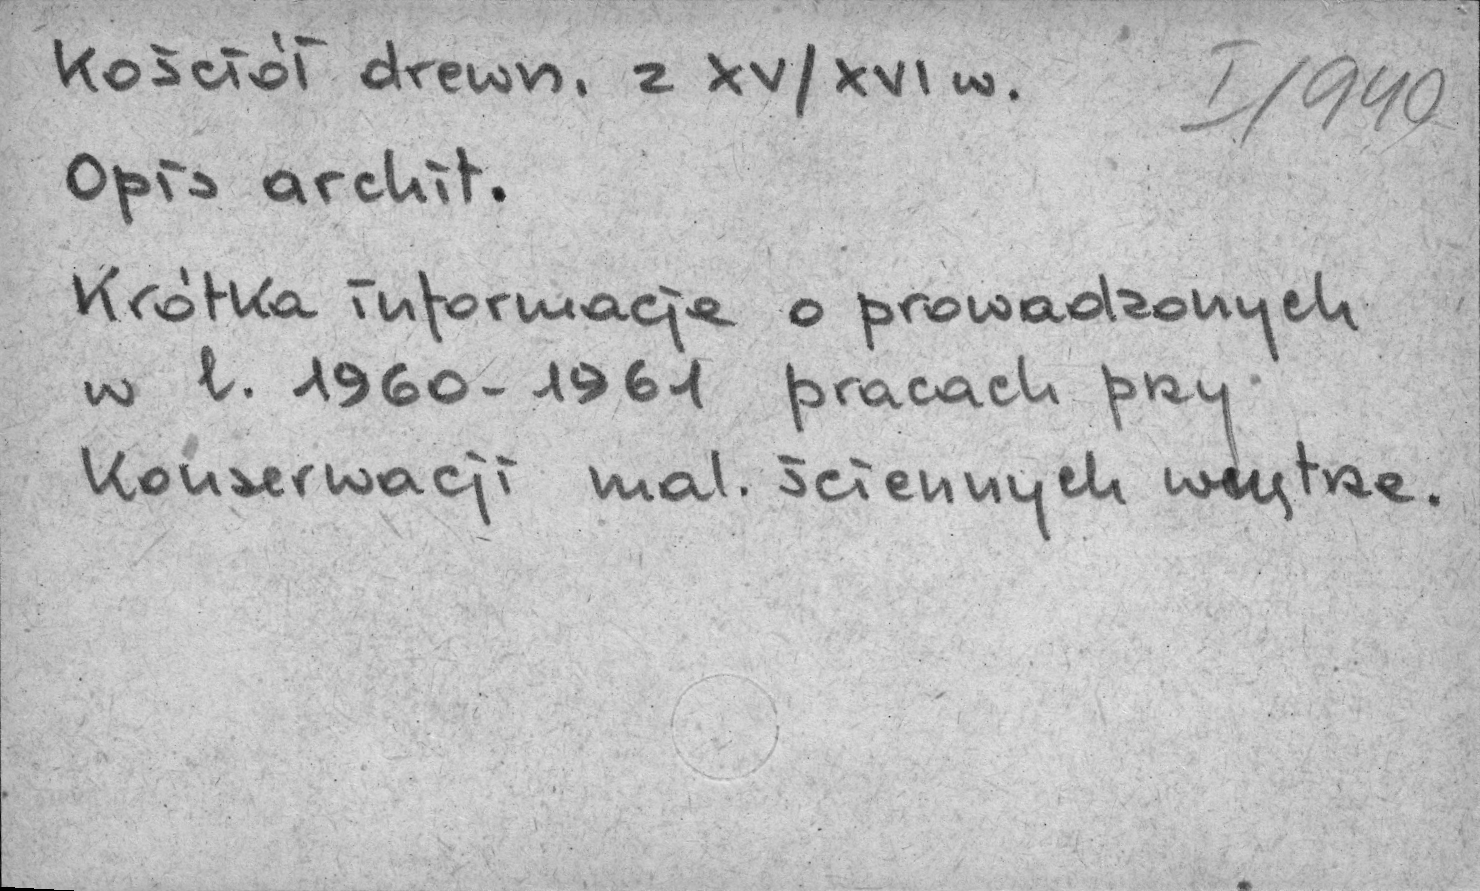 Kościół drewn. z XV/XVI w. I/940
Opis archit.
Krótka informacja o prowadzonych
w l. 1960-1961 pracach przy
Konserwacji mal. ściennych wnętrza.